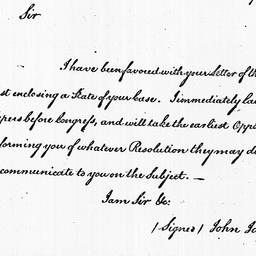 Sir
I have been favored with your Letter of th
st enclosing a State of your Case. I immediately la
pers before Congress, and will take the earliest Opp
forming you of whatever Resolution they may d
communicate to you on the Subject. —
I am Sir &c:
(Signed) John Ja